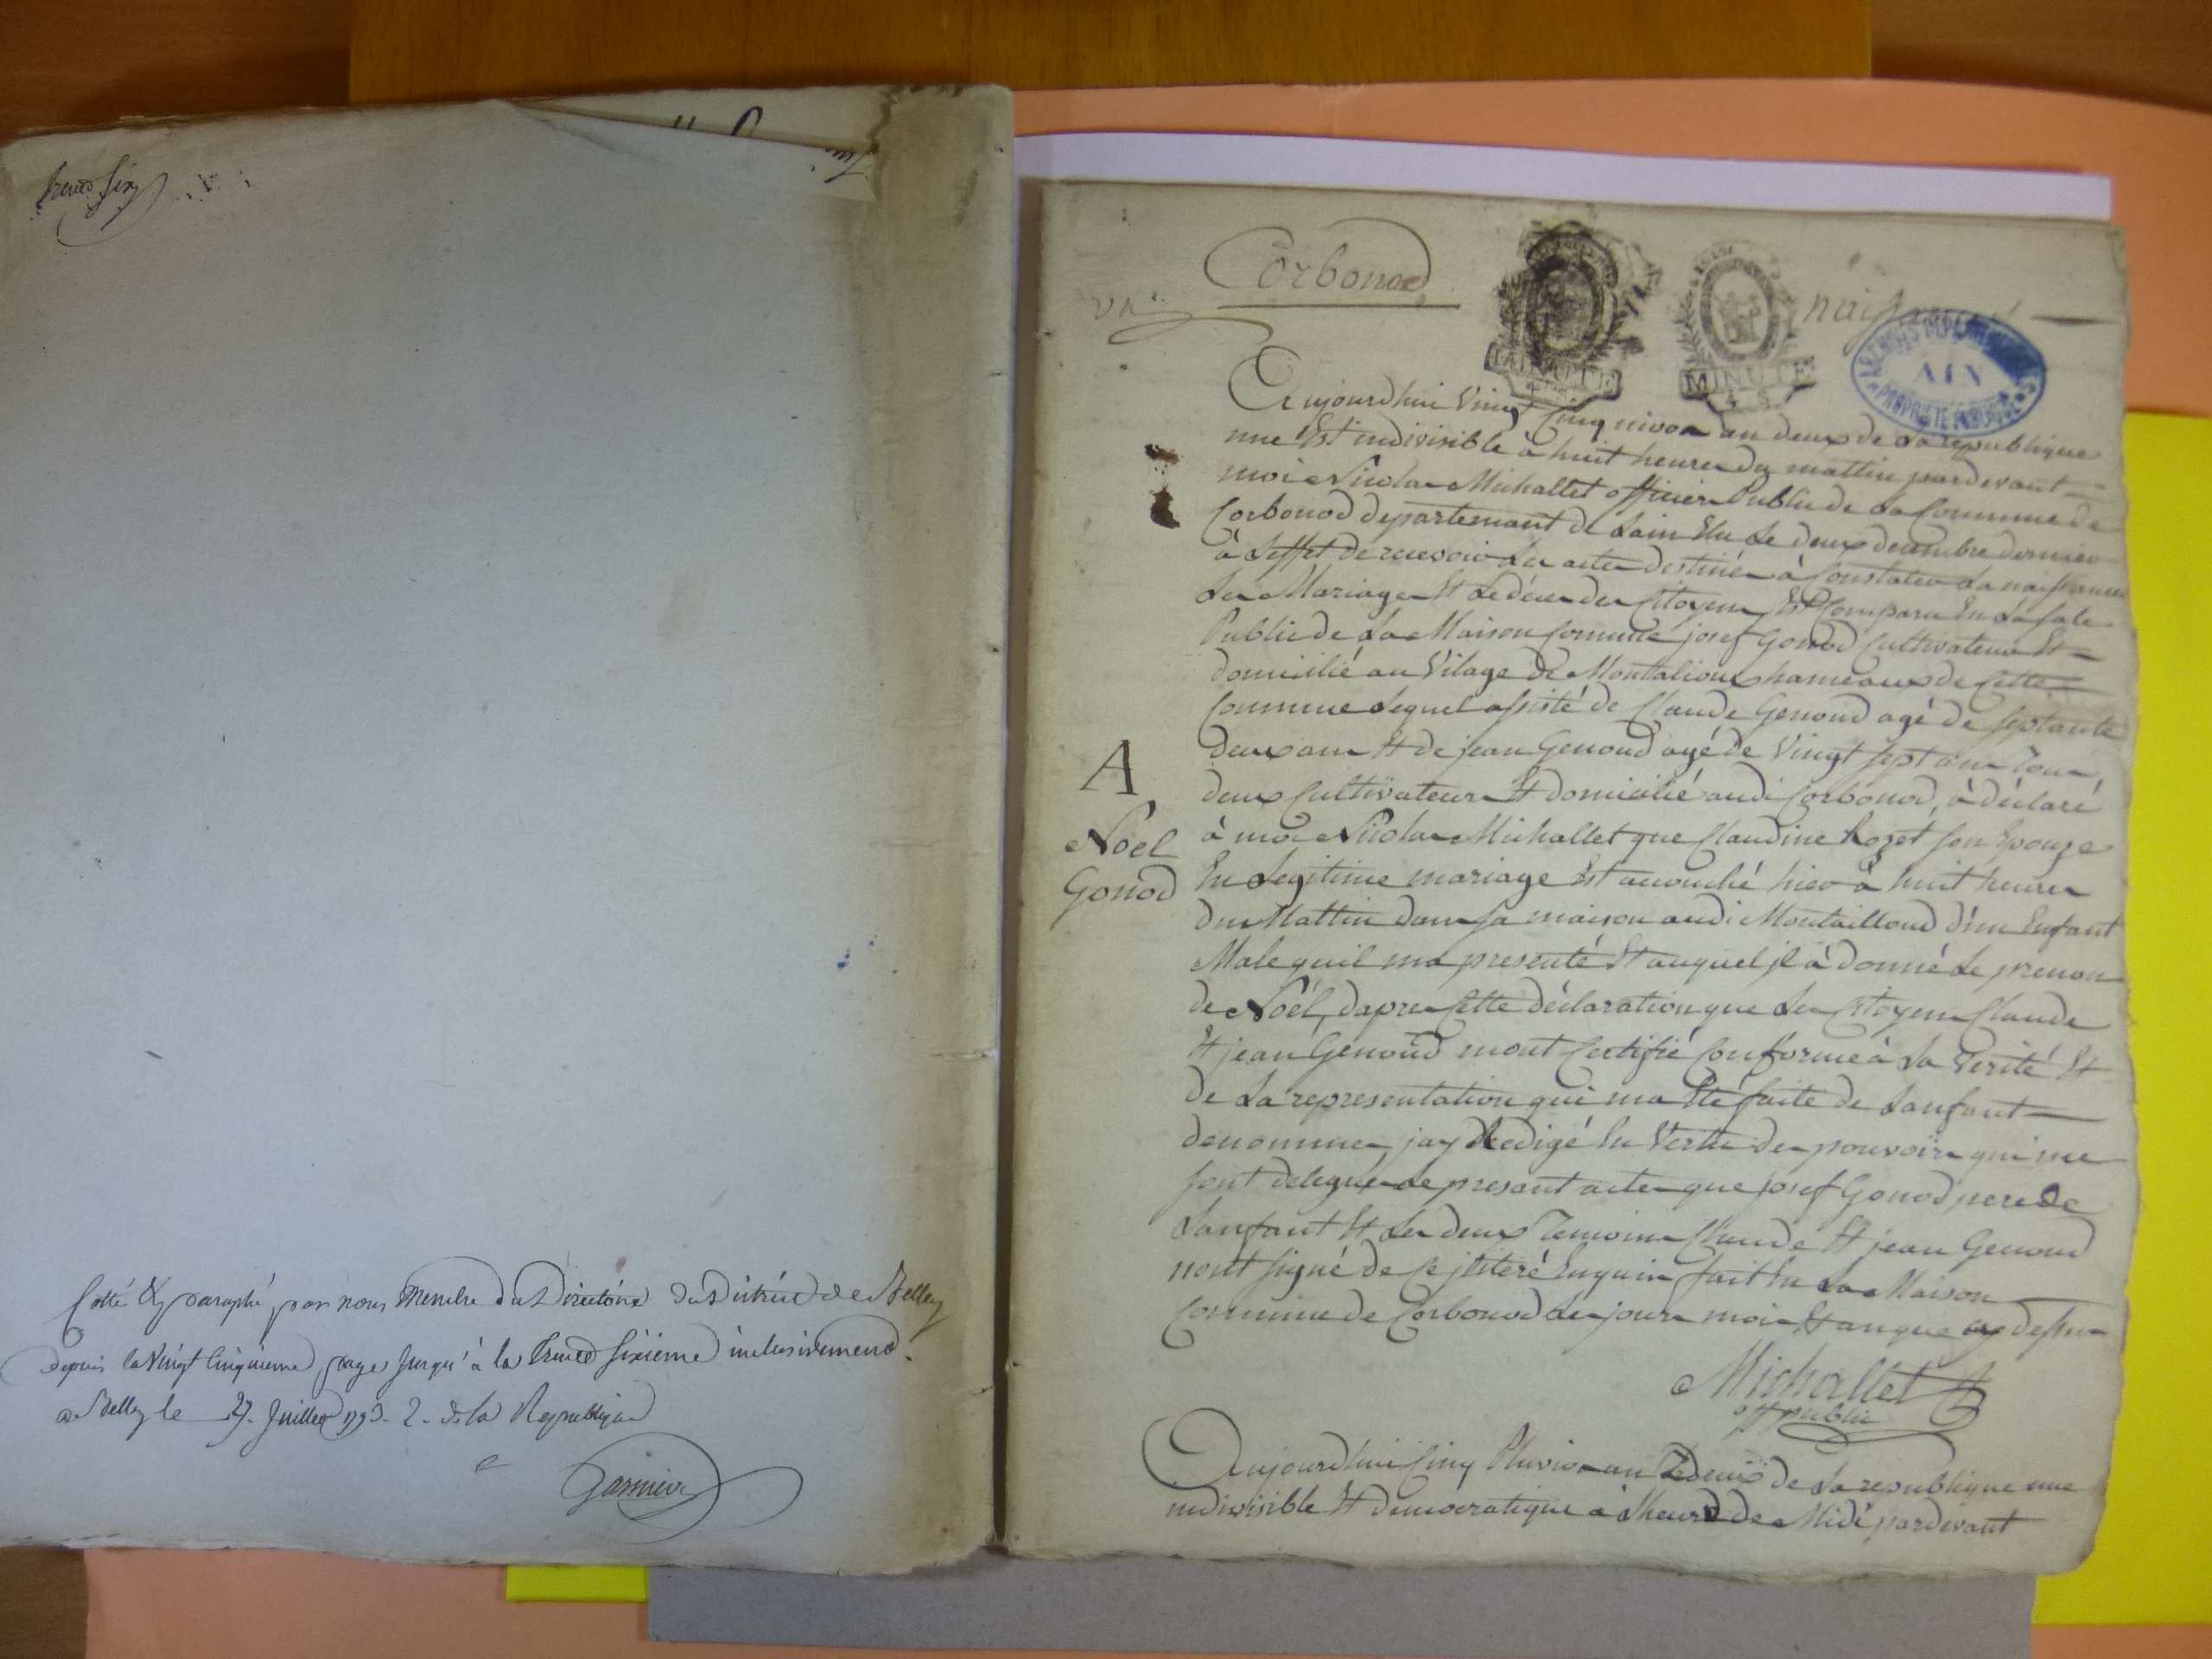 trente six
Cotté & paraphé par nous membre du Directoire du District de Belley
depuis la vingt cinquieme page jusqu'à la trente sixieme inclusivement.
a Belley le 27. Juillet 1793. 2. de la Republique
Garnier
Corbonod
un
MINUTE
MINUTE
naissances
ARCHIVES DEPARTEMENTALES
AIN
PROPRIETE PUBLIQUE
Aujourdhui vingt Cinq nivos an deux de La republique
une Est indivisible à huit heures du mattin pardevant
moi Nicolas Michallet officier Public de La Commune de
Corbonod departement de Lain Elu Le deux decembre dernier
à Leffet de recevoir Les actes destinés à Constater La naissances
Les Mariages Et Le déces des Citoyens Est Comparu En La sale
Public de La Maison Comune josef Gonod Cultivateur Et
domicilié au Vilage de Montalioux hameaux de Cette
Commune Lequel assisté de Claude Genoud agé de septante
deux ans Et de jean Genoud agé de Vingt sept ans Tous
deux Cultivateurs Et domicilié audi Corbonod, à déclaré
A
Noel
Gonod
à moi Nicolas Michallet que Claudine Rozet son Epouze
En Legitime mariage Est acouché hier à huit heures
du Mattin dans sa maison audi Montailloud d'un Enfant
Male quil ma presenté Et auquel jl à donné Le prenom
de Noël, dapres Cette déclaration que Les Citoyens Claude
Et jean Genoud mont Certifié Conforme à La Verité Et
de La representation qui ma Eté faite de Lanfant
denommer jay Redigé En Vertu des pouvoirs qui me
sont delegués Le presant acte que josef Gonod pere de
Lanfant Et Les deux Temoins Claude Et jean Genoud
nont signé de Ce fait En La Maison
Commune de Corbonod Les jours mois Et an que cy dessus
Michallet
off public
Aujourdhui Cinq Pluvios an deux de La republique une
indivisible Et democratique à Lheure de Midi pardevant